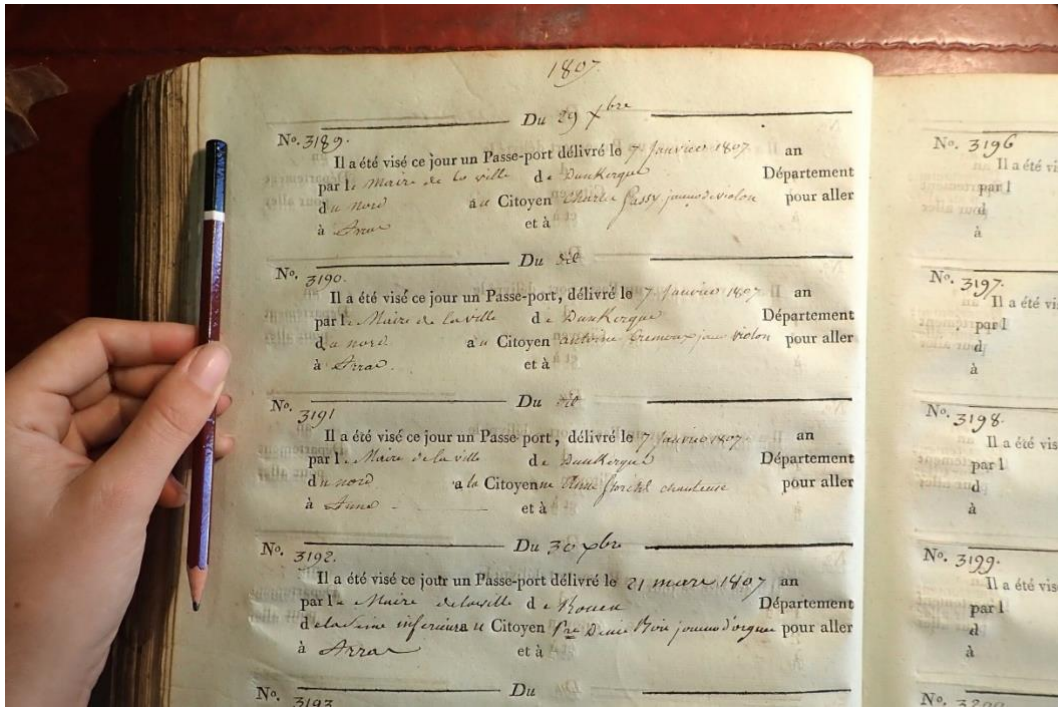 1807.
Du 29 Xbre
No. 3189.
Il a été visé ce jour un Passe-port délivré le 7 Janvier 1807 an
par le Maire de la ville de Dunkerque Département
du nord au Citoyen Charles Gassy joueur de violon pour aller
à Arras et à
Du dit
No. 3190.
Il a été visé ce jour un Passe-port, délivré le 7 Janvier 1807 an
par le Maire de la ville de Dunkerque
du nord au Citoyen antoine joueur violon pour aller
à Arras. et à
Du dit
No. 3191
Il a été visé ce jour un Passe-port, délivré le 7 Janvier 1807 an
par le Maire de la ville de Dunkerque Département
du nord a la Citoyenne chanteuse pour aller
à et à
Du 30 Xbre
No. 3192.
Il a été visé ce jour un Passe-port délivré le 21 mars 1807 an
par le Maire de la ville de Rouen Département
de la Seine inferieure au Citoyen Pre Denis joueur d'orgue pour aller
à Arras et à
Du
No. 3193
No. 3196
Il a été vi
par l
d
à
No. 3197.
Il a été vi
par l
d
à
No. 3198.
Il a été vis
par l
d
à
No. 3199.
Il a été vis
par l
d
à
No. 3200